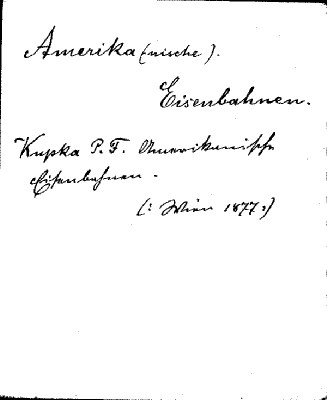 Amerika (nische).
Eisenbahnen.
Kupka P. F. Amerikanische
Eisenbahnen.
(: Wien 1877 :)